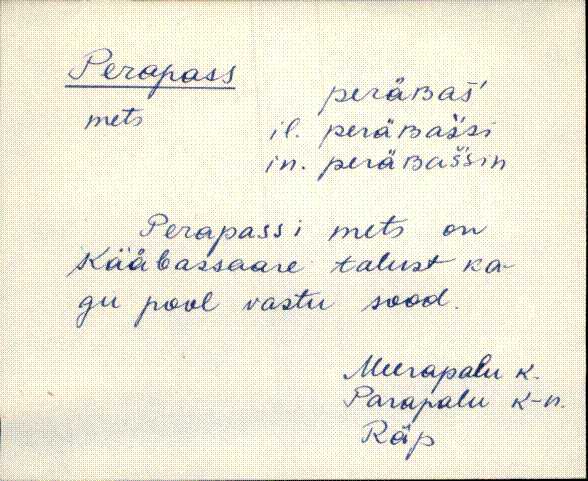 Perapass
peräʙaś
mets
il. peräʙaśśi
in. peräʙaśśin
Perapassi mets on
Kääbassaare talust ka-
gu pool vastu sood.
Meerapalu k.
Parapalu k-n.
Räp